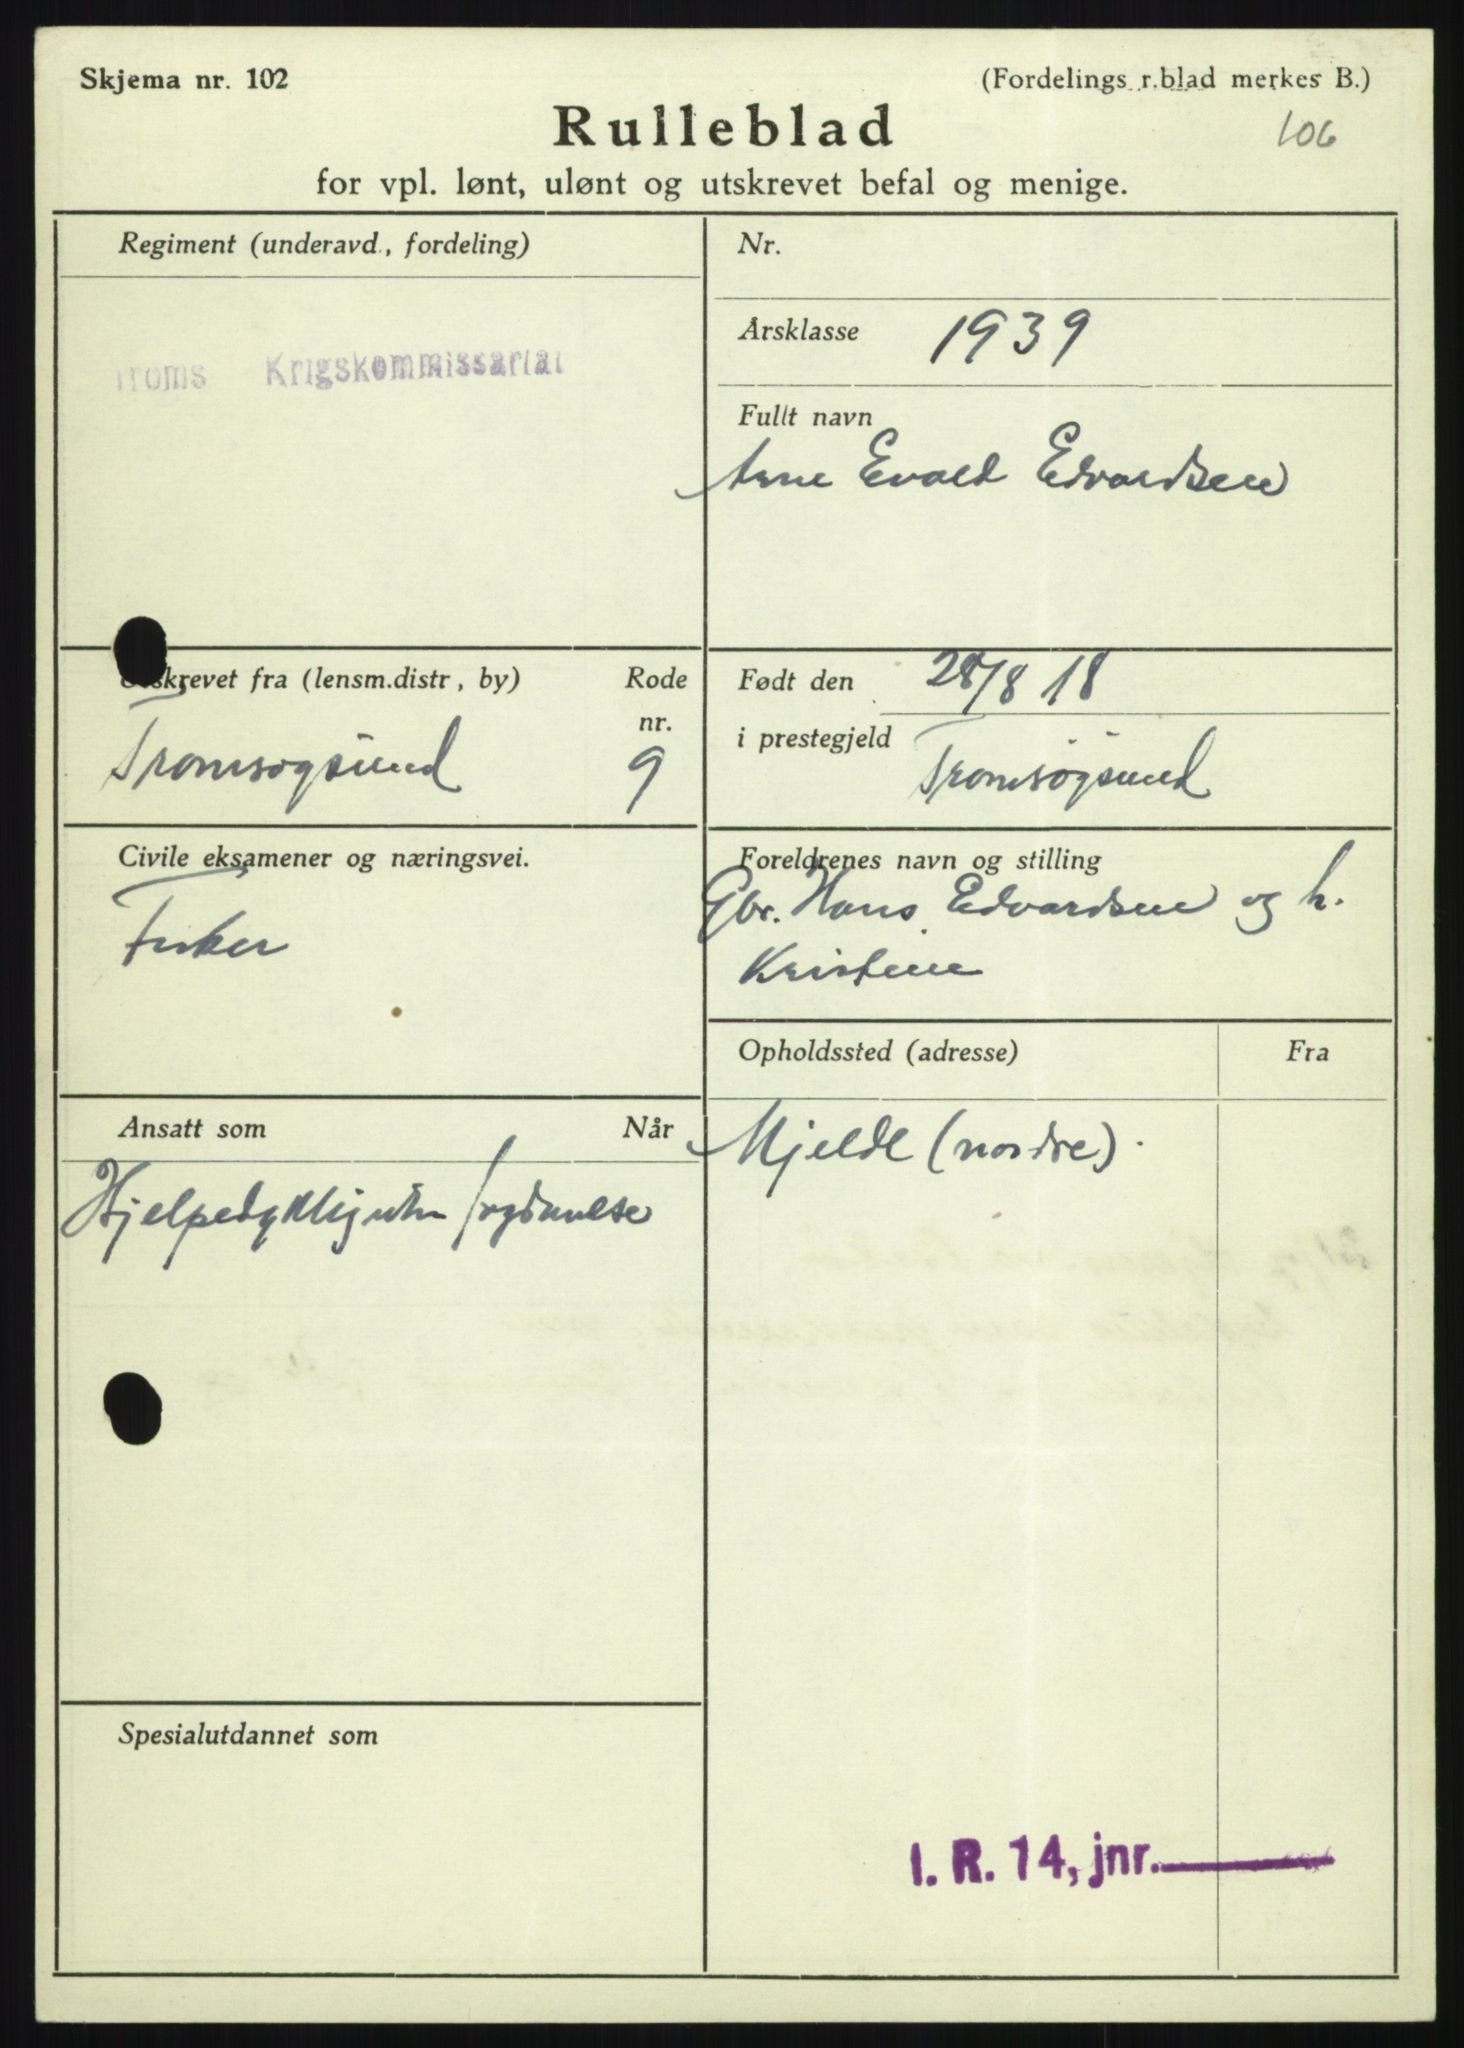 Skjema nr. 102
(Fordelings r.blad merkes B.)
Rulleblad
106
for vpl. lønt, ulønt og utskrevet befal og menige.
Regiment (underavd., fordeling)
Troms Krigskommissariat
Nr.
Årsklasse 1939
Fullt navn
Arne Evald Edvardsen
Utskrevet fra (lensm.distr, by)
Rode nr.
Tromsøysund 9
Født den 28/8 18
i prestegjeld Tromsøysund
Civile eksamener og næringsvei.
Fisker
Foreldrenes navn og stilling
Gbr. Hans Edvardsen og h.
Kristine
Opholdssted (adresse)
Fra
Mjelde (nordre).
Ansatt som
Når
Spesialutdannet som
I. R. 14, jnr.